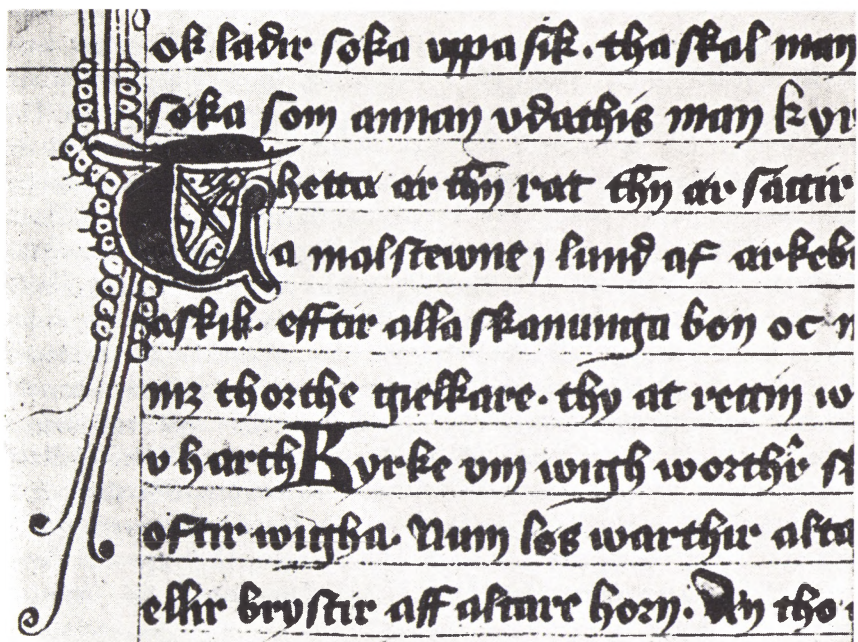 ok ladir søka uppa sik. tha skal man
søka som annan udathis man kyr
Thetta ær thn ræt thn ær sattir
a malstewne j lund af ærkebi
askik. efftir alla skanunga bøn oc
mz thorthe gielkare. thy at rettin w
v harth kyrke vm wigh worthr sk
oftir wigha. Num løs warthir alta
ellir brystir aff altare horn. Æn tho